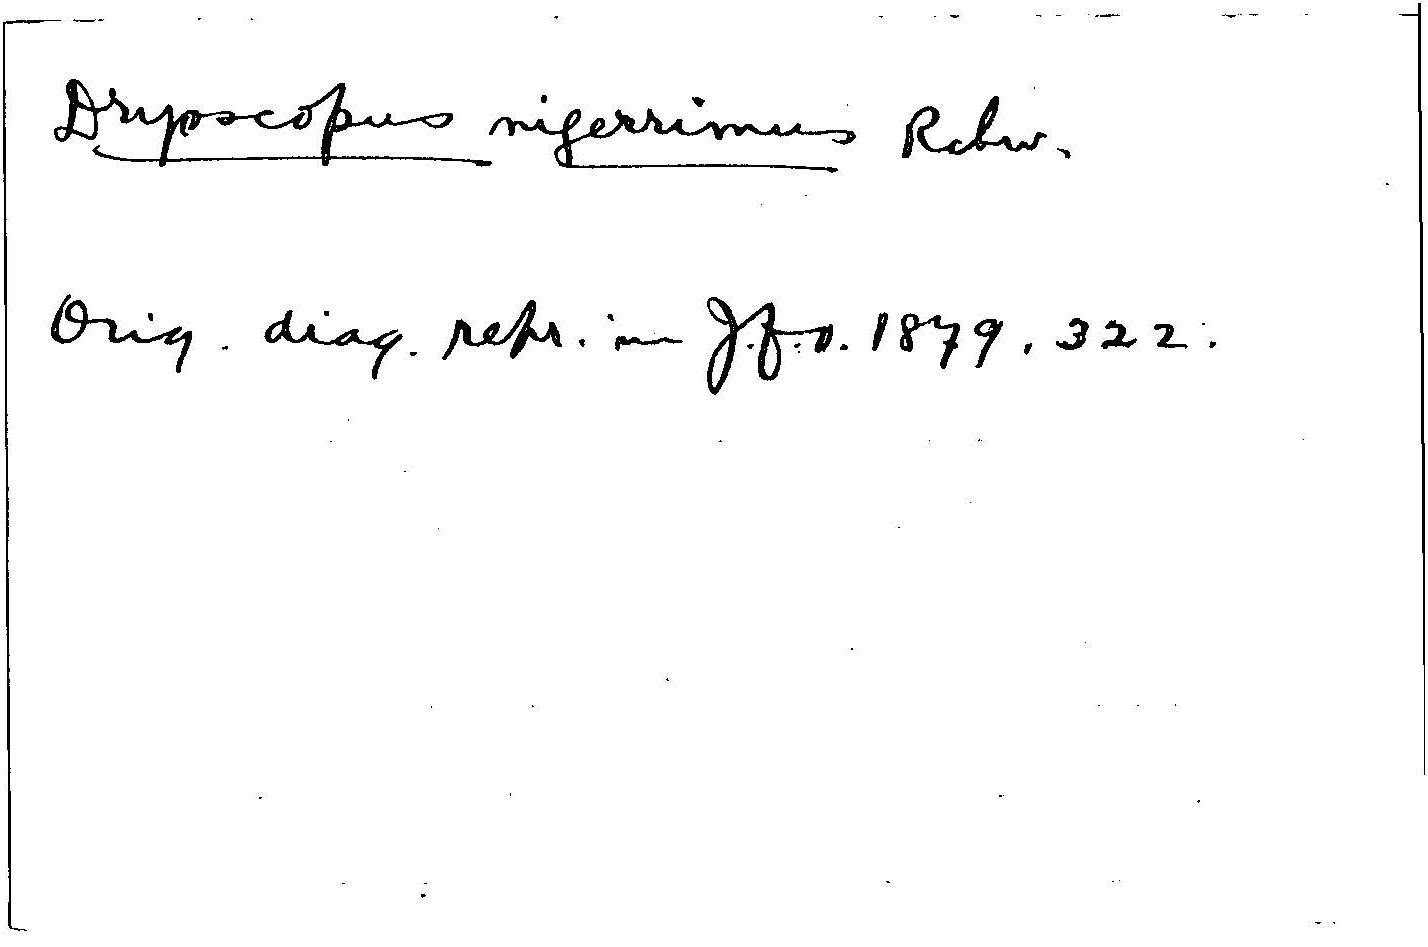 Dryoscopus nigerrimus Rchw.
Orig. diag. repr. in J.f.O. 1879, 322.